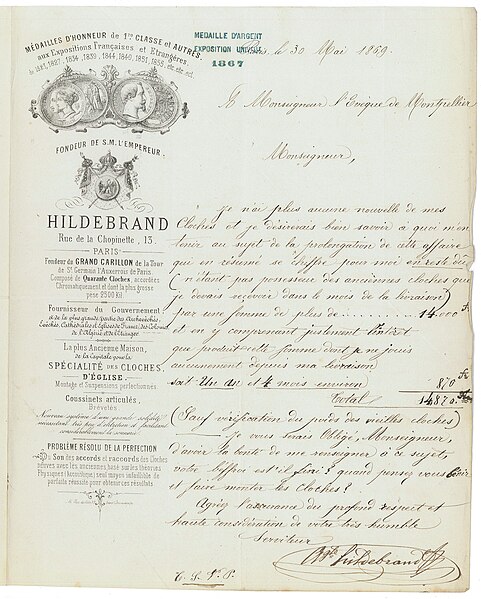 MÉDAILLES D'HONNEUR de 1re CLASSE et AUTRES,
aux Expositions Françaises et Etrangères.
FONDEUR DE S.M. L'EMPEREUR.
HILDEBRAND
Rue de la Chopinette, 13.
PARIS
Fondeur du GRAND CARILLON de la Tour
de St Germain l'Auxerrois de Paris
Composé de Quarante Cloches, accordées
Chromatiquement et dont la plus grosse
pèse 2500 Kil.
Fournisseur du Gouvernement,
et de la plus grande partie des Archevêchés,
Evêchés, Cathédrales et Eglises de France, des Colonies
de l'Algérie et de l'Etranger.
La plus Ancienne Maison,
de la Capitale pour la
SPÉCIALITÉ DES CLOCHES,
D'ÉGLISE.
Montage et Suspensions perfectionnés
Coussinets articulés,
Brevetés.
PROBLÈME RÉSOLU DE LA PERFECTION
Du Son des accords et raccords des Cloches
neuves avec les anciennes basé sur les théories
Physiques (Acoustique) seul moyen infaillible de
parfaite réussite pour obtenir ces résultats
MEDAILLE D'ARGENT
EXPOSITION UNIVELLE
1867
Paris, le 30 Mai 1869.
A Monseigneur l'Evêque de Montpellier
Monseigneur,
Je n'ai plus aucune nouvelle de mes
Cloches et je désirerais bien savoir à quoi m'en
tenir au sujet de la prolongation de cette affaire
que en résumé se chiffre pour moi en reste dû
(n'étant pas possesseur des anciennes cloches que
je devais recevoir dans le mois de la livraison)
par une somme de plus de ........ 14.000 Fr
et en y comprenant justement l'intéret
que produit cette somme dont je ne jouis
aucunement depuis ma livraison
soit Un an et 4 mois environ 870 Fr
Total 14870 Fr
(Sauf vérification du poids des vieilles cloches)
Je vous serais Obligé, Monseigneur,
d'avoir la bonté de me renseigner à ce sujet,
votre Beffroi est'il fini? quand pensez vous bénir
et faire monter les Cloches?
Agréez l'assurance du profond respect et
haute considération de votre très humble
Serviteur
Hildebrand
T. S. V. P.